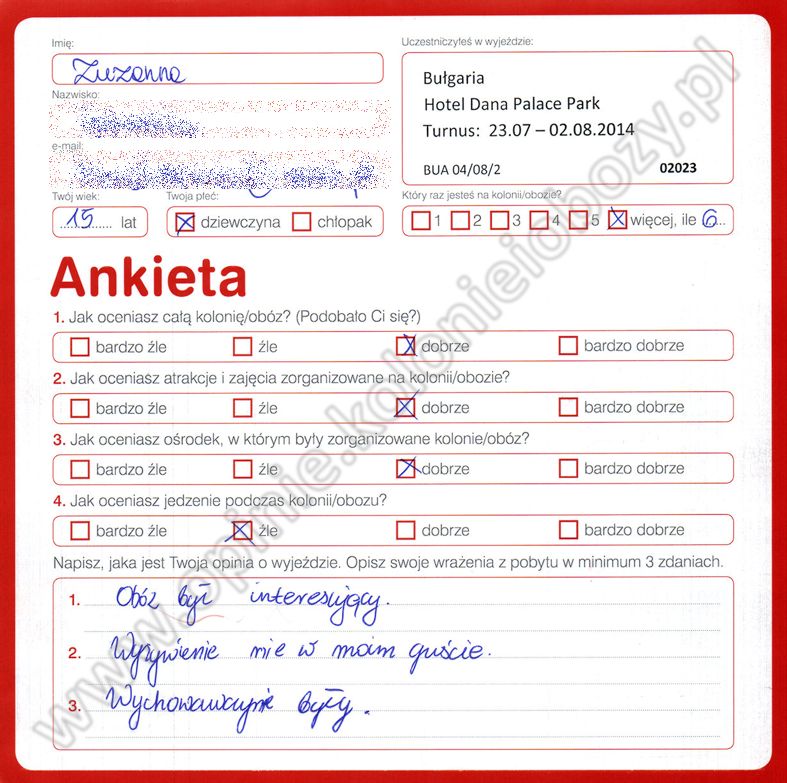 Imię:
Zuzanna
Nazwisko:
e-mail:
Twój wiek:
15 lat
Twoja płeć:
dziewczyna chłopak
Uczestniczyłeś w wyjeździe:
Bułgaria
Hotel Dana Palace Park
Turnus: 23.07 – 02.08.2014
BUA 04/08/2 02023
Który raz jesteś na kolonii/obozie?
1 2 3 4 5 więcej, ile 6
Ankieta
1. Jak oceniasz całą kolonię/obóz? (Podobało Ci się?)
bardzo źle źle dobrze bardzo dobrze
2. Jak oceniasz atrakcje i zajęcia zorganizowane na kolonii/obozie?
bardzo źle źle dobrze bardzo dobrze
3. Jak oceniasz ośrodek, w którym były zorganizowane kolonie/obóz?
bardzo źle źle dobrze bardzo dobrze
4. Jak oceniasz jedzenie podczas kolonii/obozu?
bardzo źle źle dobrze bardzo dobrze
Napisz, jaka jest Twoja opinia o wyjeździe. Opisz swoje wrażenia z pobytu w minimum 3 zdaniach.
1. Obóz był interesujący.
2. Wyżywienie nie w moim guście.
3. były.
www.opinie.kolonieiobozy.pl